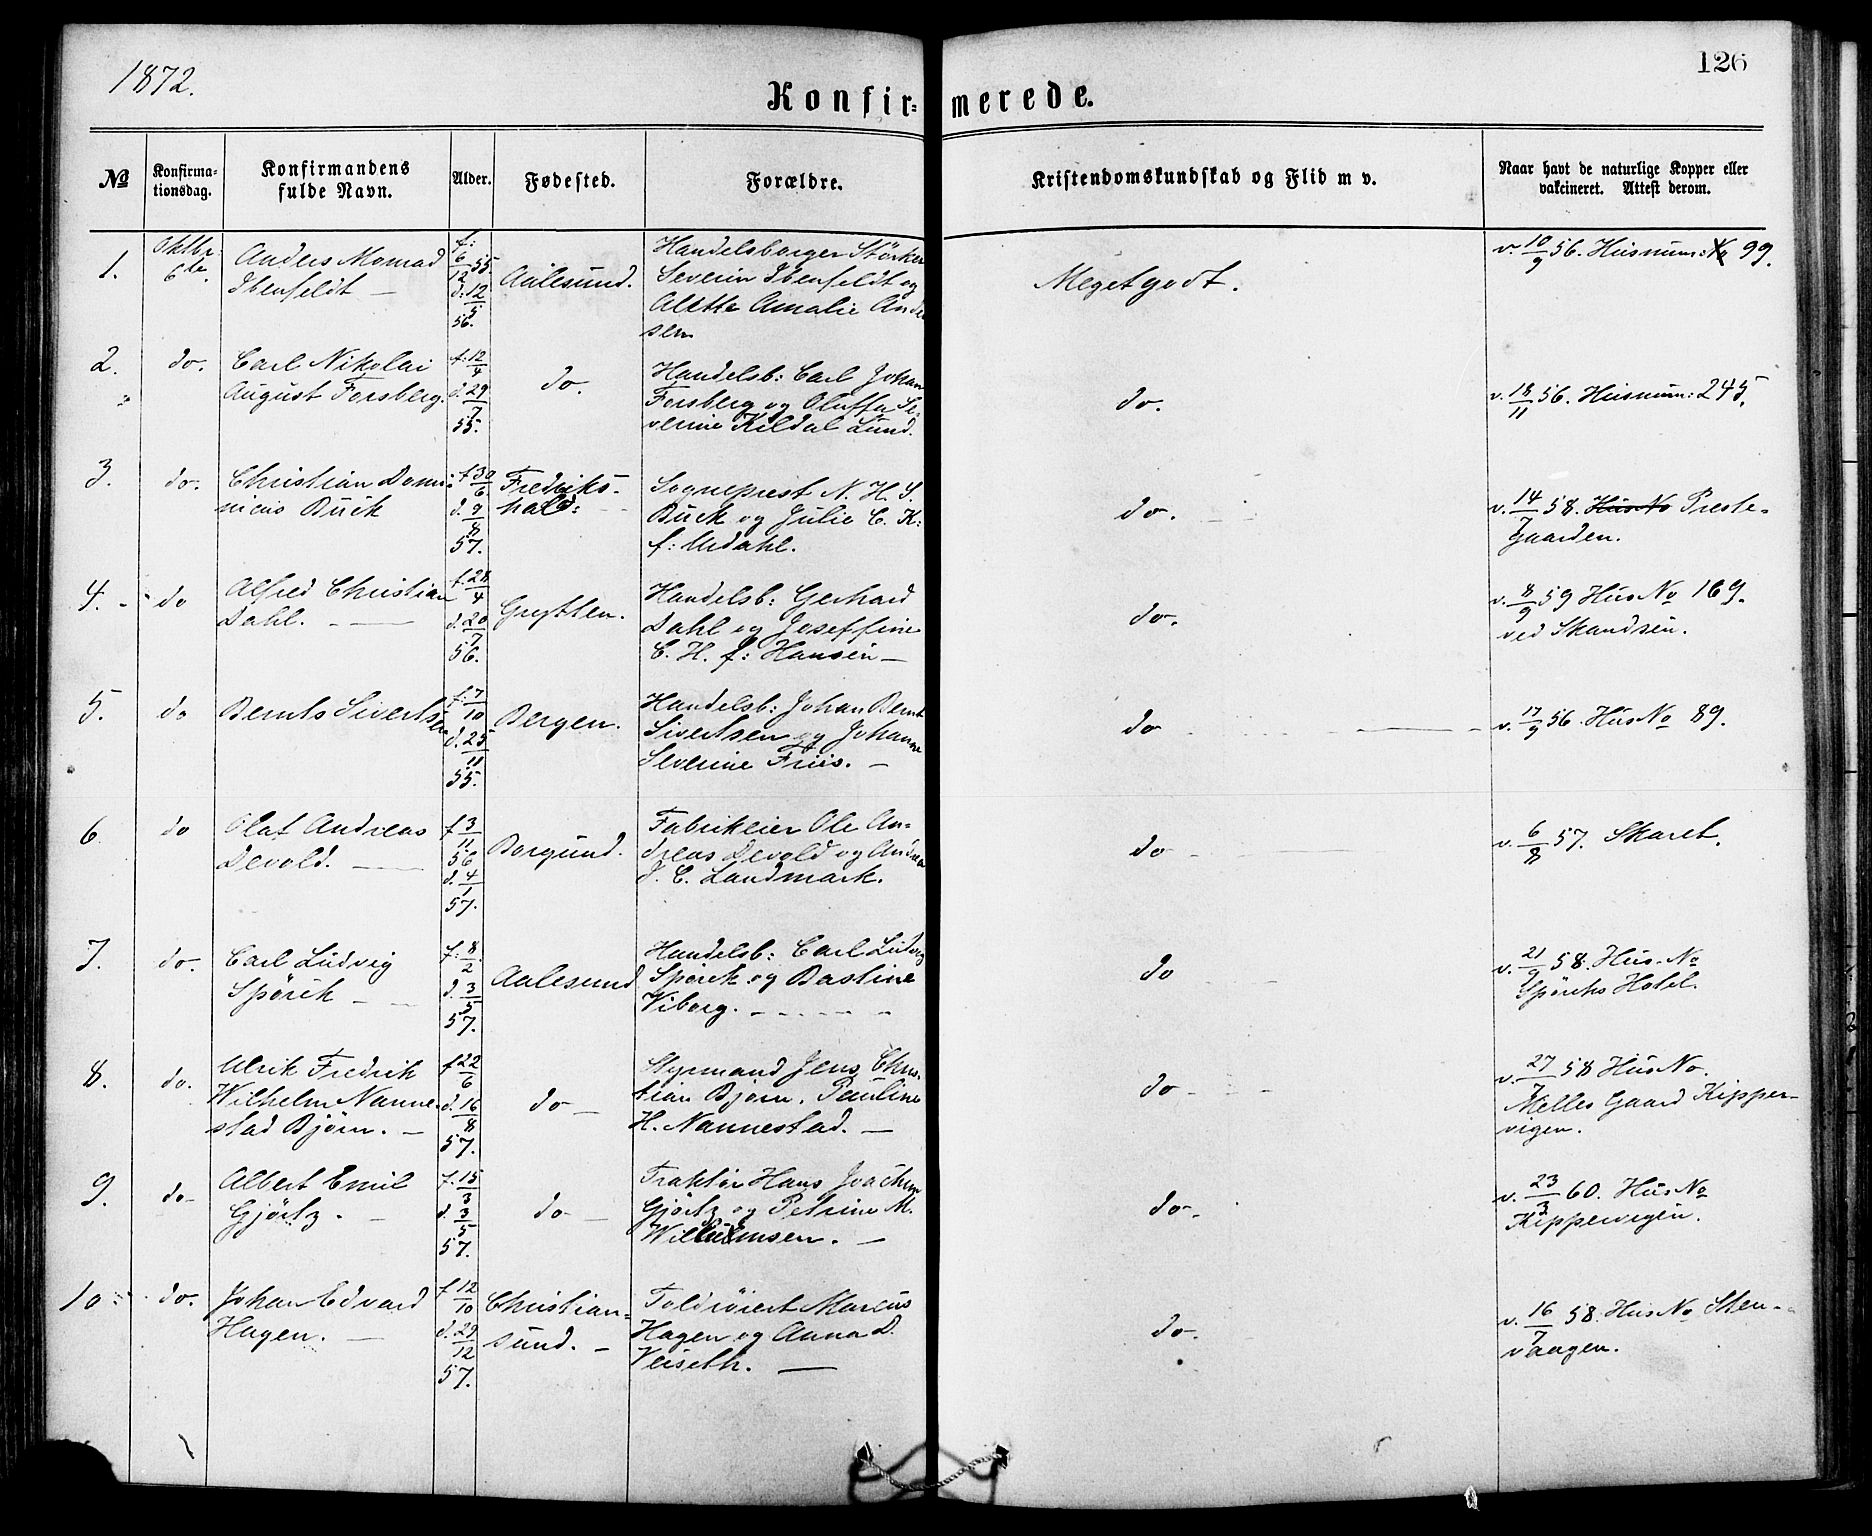 1872.
126
Konfir= merede.
No
Konfirma-
tionsdag.
Konfirmandens
fulde Navn.
Alder.
Fødested.
Forældre.
Kristendomskundskab og Flid m v.
Naar havt de naturlige Kopper eller
vakcineret. Attest derom.
1.
Oktbr
6te
Anders Monrad
Ibenfeldt —
f: 6/12 55.
d: 12/5
56.
Aalesund.
Handelsborger Störker
Severin Ibenfeldt og
Alette Amalie Ander
sen
Meget godt.
v. 10/9 56. Husnum: 99.
2.
do.
Carl Nikolai
August Forsberg.
f: 12/4
d. 29/7
55.
do.
Handelsb: Carl Johan
Forsberg og Oluffa Se-
verine Kildal Lund.
do.
v. 18/11 56. Husnum: 245.
3.
do.
Christian Domi-
nicus Buck
f 30/6
d. 9/8
57.
Fredriks-
hald:
Sogneprest N. H. S.
Buck og Julie C. K:
f: Urdahl.
do.
v. 14/7 58. HusNo Preste-
gaarden.
4.
do
Alfred Christian
Dahl. —
f. 28/4
d. 20/7
56.
Grytten.
Handelsb: Gerhard
Dahl og Joseffine
C. H. f: Hansen —
do.
v. 8/9 59 HusNo 169.
ved Skandsen.
5.
do
Bernts Sivertsen
f: 7/10
d. 25/11
55.
Bergen.
Handelsb: Johan Bernt
Sivertsen og Johanne
Severine Friis. —
do
v. 17/9 56. HusNo 89.
6
do
Olaf Andreas
Devold. —
f 3/11
56
d. 4/1
57.
Borgund.
Fabrikeier Ole An-
dreas Devold og Andrea
J. C. Landmark.
do
v. 6/8 57. Skaret.
7.
do.
Carl Ludvig
Spörck —
f: 8/2
d. 3/5
57.
Aalesund
Handelsb: Carl Ludvig
Spörck og Bastine
Viborg.
do
v. 21/9 58. Hus. No
Spörcks Hotel.
8.
do.
Ulrik Fredrik
Wilhelm Nanne-
stad Björn. —
f 22/6
d. 16/8
57.
do —
Styrmand Jens Chris-
tian Björn. Pauline
H. Nannestad. —
do
v. 27/7 58 HusNo.
Melles Gaard Kipper-
vigen.
9.
do
Albert Emil
Gjörtz. —
f. 15/3
d. 3/5
57.
do —
Traktör Hans Joachim
Gjörtz og Petrine M.
Wilhelmsen. —
do.
v. 23/3 60. HusNo
Kippervigen.
10.
do.
Johan Edvard
Hagen. —
f 12/10
d. 29/12
57.
Christian-
sund. —
Toldrörert Marcus
Hagen og Anna D.
Veiseth. —
do.
v. 16/7 58. HusNo Sten-
vaagen.